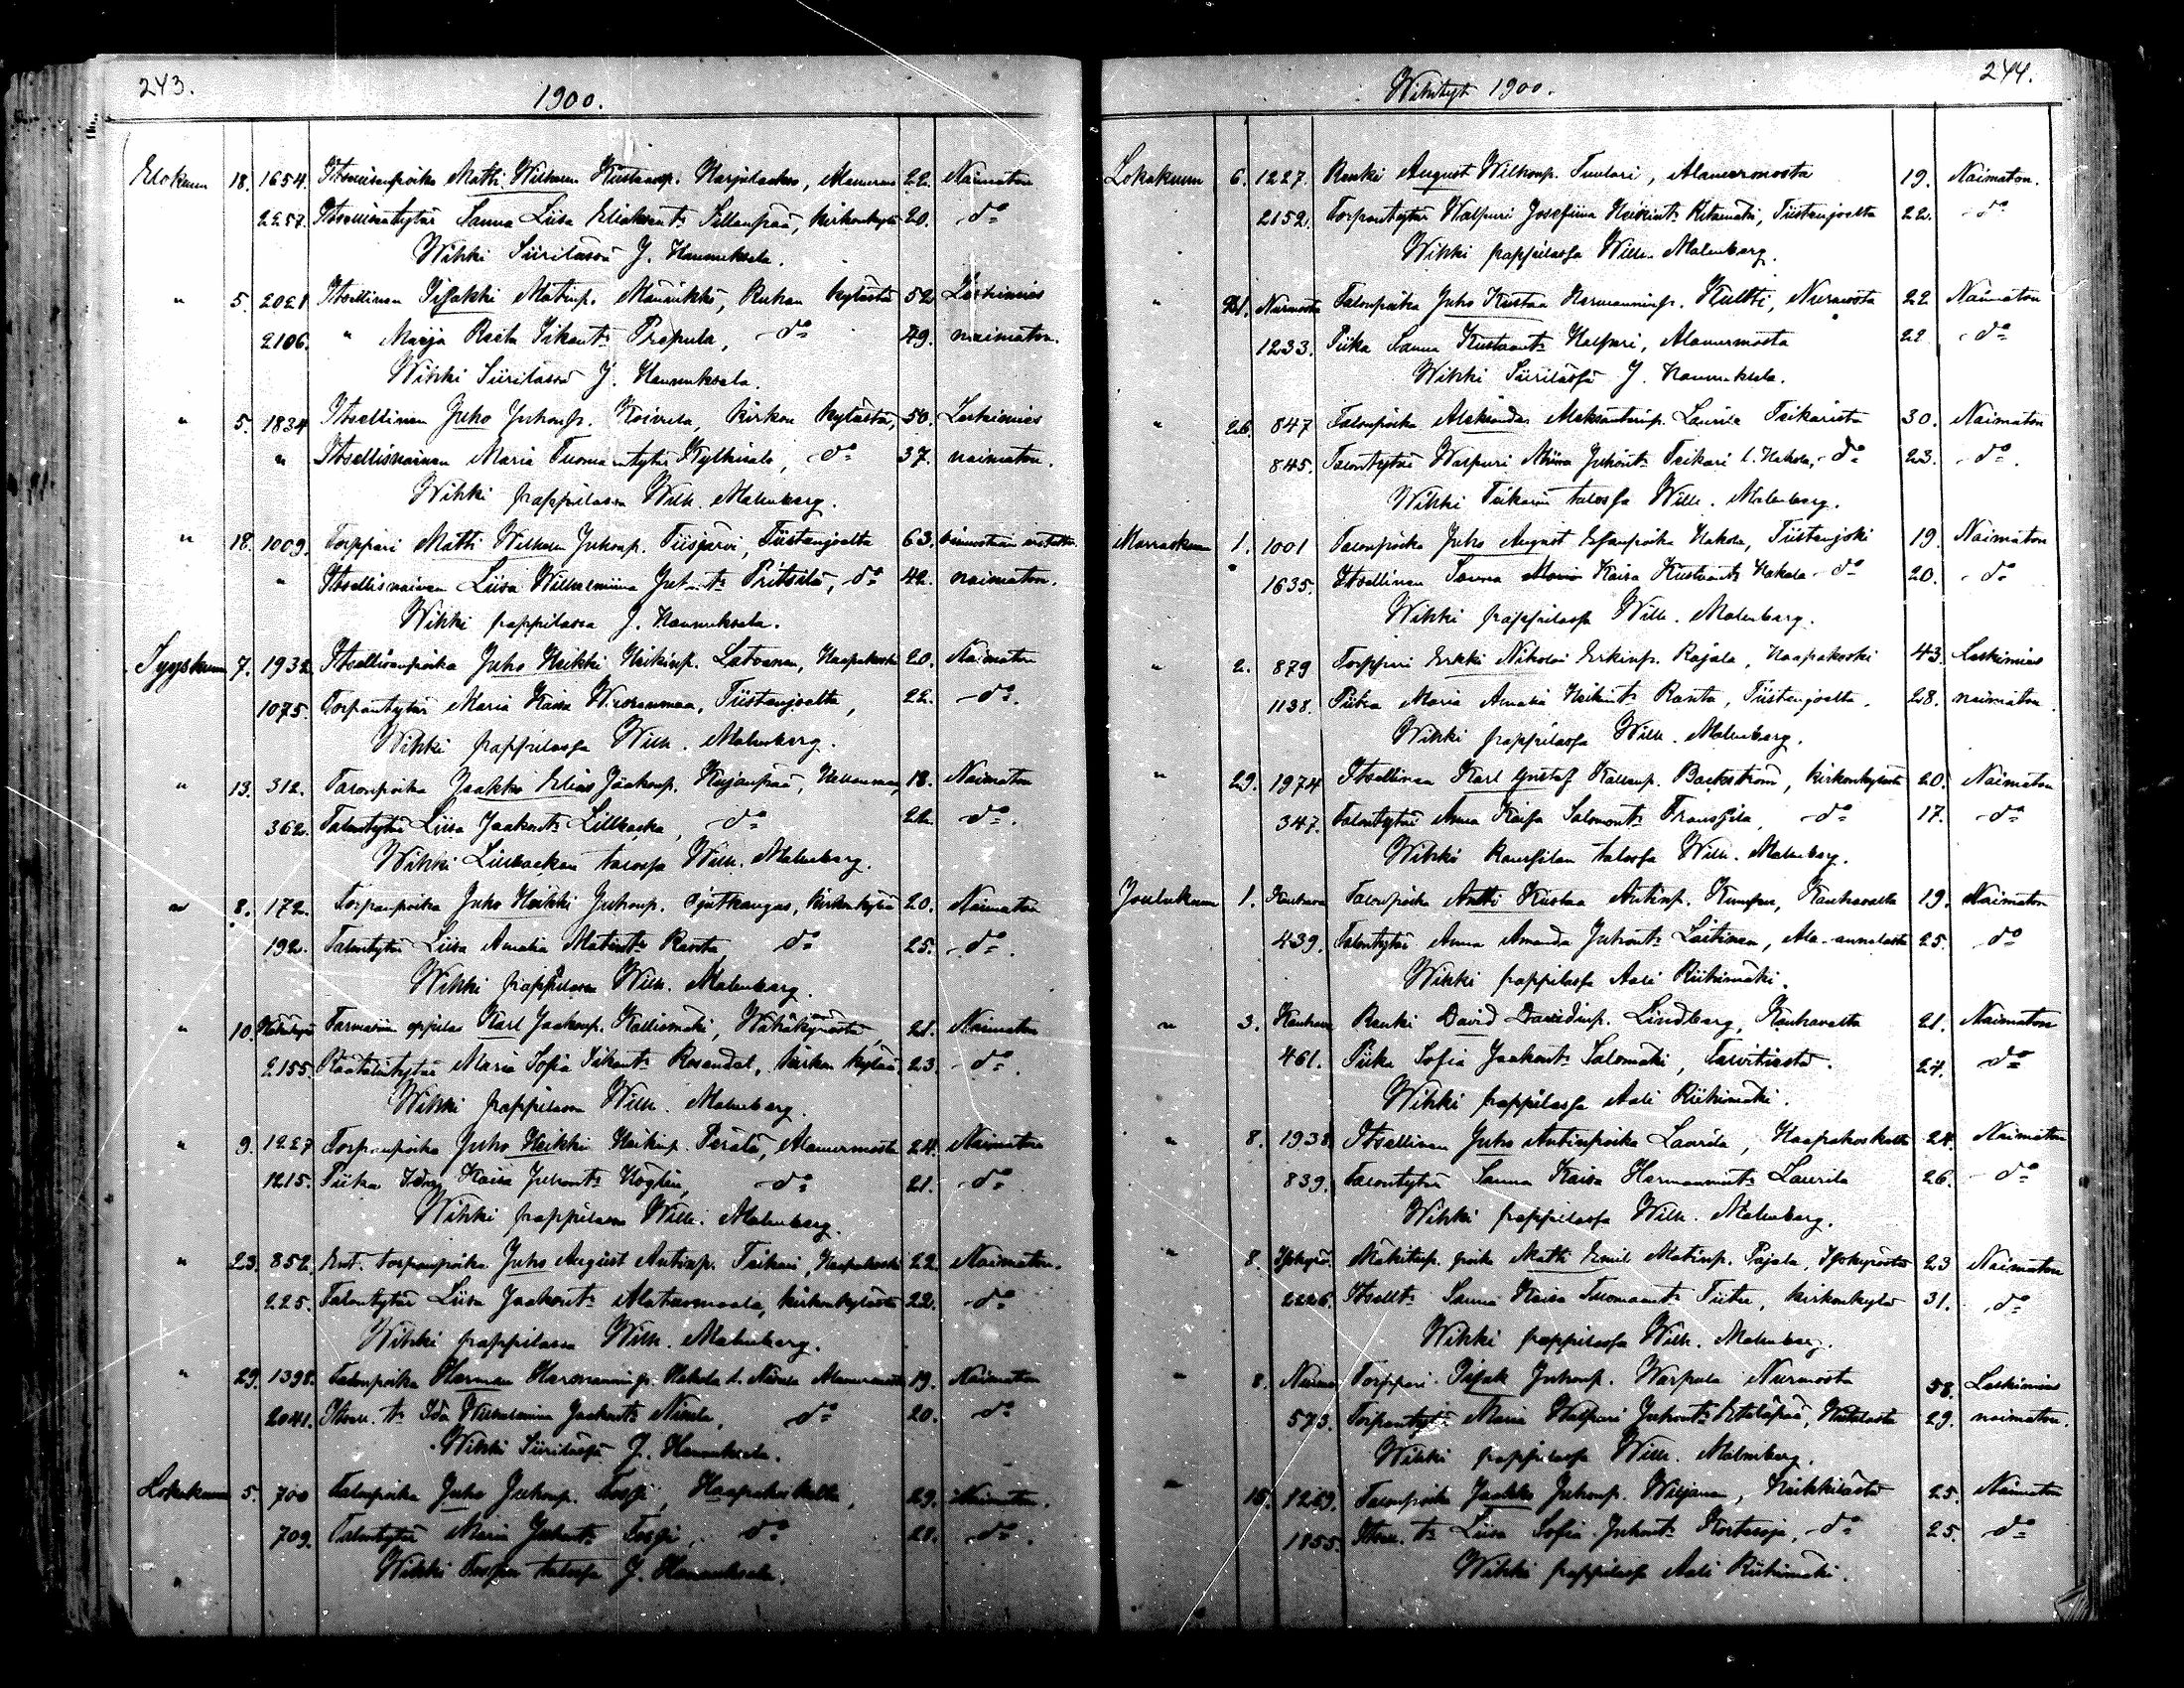 243.
1900.
Elokuun 18. 1654. Itsellisenpoika Matti Wilhelm Kustaanp. Harjulaakso, Alanurmo 22. Naimaton
2257. Itsellisentytär Sanna Liisa Eliaksent. Sillanpää, kirkonkylä 20. do
Wihki Siirilässä J. Hannuksela.
" 5. 2021 Itsellinen Iisakki Matinp. Mäννikkö, Ruhan kylästä 52 Leskimies
2106. " Maija Reeta Iikant. Prepula, do 49. naimaton.
Wihki Siirilässä J. Hannuksela.
" 5. 1834 Itsellinen Juho Juhonp. Koivula, kirkon kylästä, 50. Leskimies
" Itsellisnainen Maria Tuomaantytär Kylkisalo, do 37. naimaton.
Wihki pappilassa Wilh. Malmberg.
" 18. 1009. Torppari Matti Wilhelm Juhonp. Tiisjärvi, Tiistenjoelta 63.
" Itsellisnainen Liisa Wilhelmiina Juh.t. Pritsilä, do 42. naimaton.
Wihki pappilassa J. Hannuksela.
Syyskuun 7. 1932. Itsellisenpoika Juho Heikki Heikinp. Latvanen, Haapakoski 20. Naimaton
1075. Torpantytär Maria Kaisa Wuorenmaa, Tiistenjoelta, 22. do.
Wihki pappilassa Wilh. Malmberg.
" 13. 312. Talonpoika Jaakko Elias Jaakonp. Kujanpää, Hellanmaa, 18. Naimaton
362. Talontytär Liisa Jaakont. Lillbacka, do 22. do.
Wihki Lillbackan talossa Wilh. Malmberg.
" 8. 172. Torpanpoika Juho Heikki Juhonp. Ojutkangas, kirkonkylä 20. Naimaton
192. Talontytär Liisa Amalia Matint. Ranta do 25. do.
Wihki pappilassa Wilh. Malmberg.
" 10. Farmasiin oppilas Karl Jaakonp. Kalliomäki, Wähäkyröstä, 21. Naimaton
2155. Räätälintytär Maria Sofia Iikant. Rosendal, kirkon kylää, 23. do.
Wihki pappilassa Wilh. Malmberg.
" 9. 1227 Torpanpoika Juho Heikki Heikinp. Perälä, Alanurmosta 24. Naimaton
1215. Piika Kaisa Juhont. Höglin, do 21. do
Wihki pappilassa Wilh. Malmberg.
" 23. 852. Ent. torpanpoika Juho August Antinp. Tsikari, Haapakoski 22. Naimaton.
225. Talontytär Liisa Jaakont. Alatuomaala, kirkonkylästä 22. do
Wihki pappilassa Wilh. Malmberg.
" 29. 1398. Talonpoika Herman Hermanninp. Hakola l. Nisula Alanurmosta 19. Naimaton
2041. Itsell. t. Ida Wilhelmiina Jaakont. Nisula, do 20. do
Wihki Siirilässä J. Hannuksela.
Lokakuun 5. 700 Talonpoika Juho Juhonp. Fossi, Haapakoskelta, 29. Naimaton.
709. Talontytär Maria Juhont. Fossi, do 21. do.
Wihki Fossin talossa J. Hannuksela.
Wihityt 1900. 244.
Lokakuun 6. 1227. Renki August Wilhonp. Tuulari, Alanurmosta 19. Naimaton.
2152. Torpantytär Walpuri Josefiina Heikint. Ketomäki, Tiistenjoelta 22. do
Wihki pappilassa Wilh. Malmberg.
" 21. Nurmosta Talonpoika Juho Kustaa Hermanninp. Kultti, Nurmosta 22 Naimaton
1233. Piika Sanna Kustaant. Kaspari, Alanurmosta 22 do
Wihki Siirilässä J. Hannuksela.
" 26. 847 Talonpoika Aleksander Aleksanterinp. Laurila Tsikarista 30. Naimaton
845. Talontytär Walpuri Miina Juhont. Tsikari l. Hakola, do 23. do.
Wihki Tsikarin talossa Wilh. Malmberg.
Marraskuun 1. 1001 Talonpoika Juho August Esanpoika Hakola, Tiistenjoki 19. Naimaton
1635. Itsellinen Sanna Kaisa Kustaant. Hakola do 20. do
Wihki pappilassa Wilh. Malmberg.
" 2. 879 Torppari Erkki Nikolai Erkinp. Rajala, Haapakoski 43. Leskimies
1138. Piika Maria Amalia Heikint. Ranta, Tiistenjoelta. 28. naimaton.
Wihki pappilassa Wilh. Malmberg.
" 29. 1974 Itsellinen Karl Gustaf Kallenp. Backström, kirkonkylästä 20. Naimaton
347. Talontytär Anna Kaisa Salomont. Franssila, do 17. do
Wihki Ranssilan talossa Wilh. Malmberg.
Joulukuun 1. Kauhava Talonpoika Antti Kustaa Antinp. Kauhavalta 19. Naimaton
439. Talontytär Anna Amanda Juhont. Laitinen, Ala-annalasta 25. do
Wihki pappilassa Aali Riihimäki.
" 3. Kauhava Renki David Davidinp. Lindberg, Kauhavalta 21. Naimaton
461. Piika Sofia Jaakont. Salomäki, 24. do
Wihki pappilassa Aali Riihimäki.
" 8. 1938 Itsellinen Juho Antinpoika Laurila, Haapakoskelta 24. Naimaton
839. Talontytär Sanna Kaisa Hermannint. Laurila 26. do
Wihki pappilassa Wilh. Malmberg.
" 8. Isokyrö. Mäkitup. poika Matti Emil Matinp. Pajala, Isokyröstä 23 Naimaton
2226. Itsellt. Sanna Kaisa Tuomaant. Fiitu, kirkonkylä 31. do
Wihki pappilassa Wilh. Malmberg.
" 8. Nurmo Torppari Iisak Juhonp. Warpula Nurmosta 58. Leskimies
573. Torpantytär Maria Walpuri Juhont. Eteläpää, 29. naimaton.
Wihki pappilassa Wilh. Malmberg.
" 16. 1269. Talonpoika Jaakko Juhonp. Wiljanen, 25. Naimaton
1855. Itsell. t. Liisa Sofia Juhont. Kortesoja, do 25. do
Wihki pappilassa Aali Riihimäki.